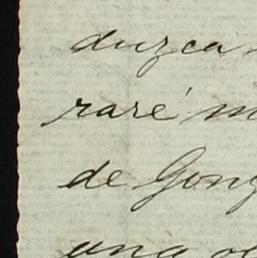 duzca
raré m
de Gong
una o